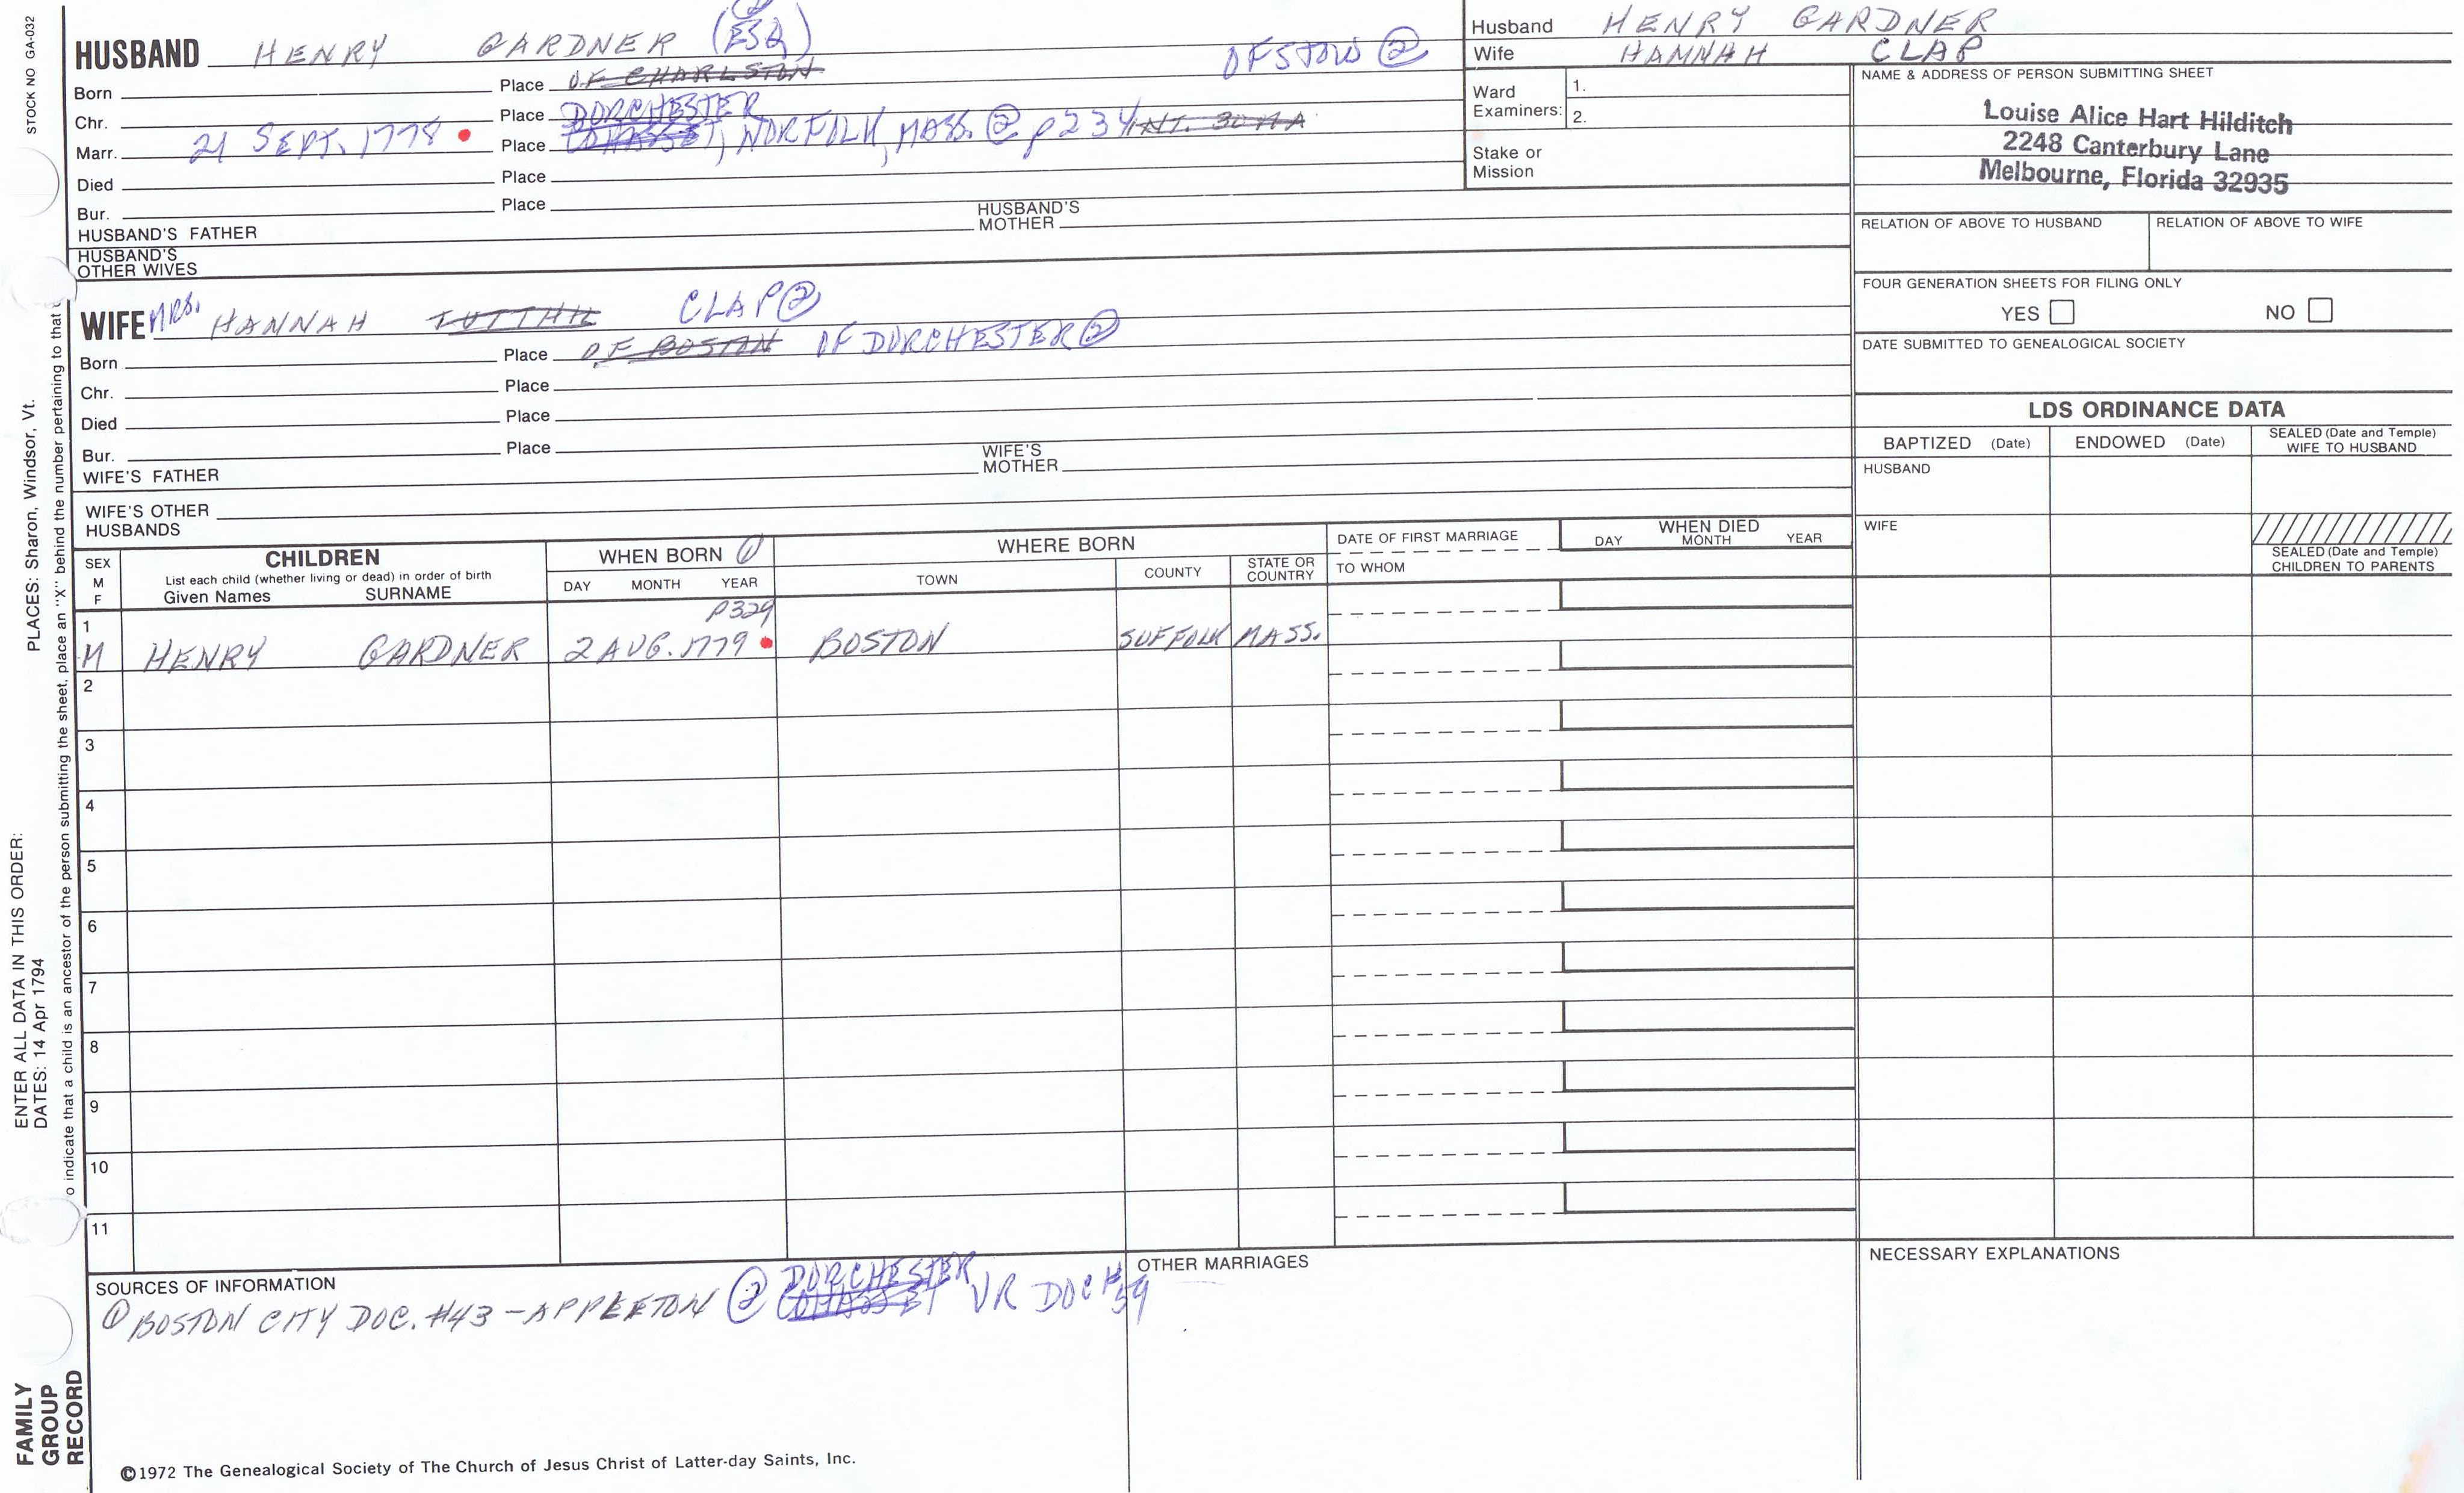 STOCK NO GA-032
HUSBAND HENRY GARDNER (ESQ)
Born Place OF CHARLSTON OF STOW ②
Chr. Place DORCHESTER
Marr. 21 SEPT. 1778 Place COHASSET, NORFOLK, MASS. ② p234 INT. 30 MA
Died Place
Bur. Place
HUSBAND'S FATHER HUSBAND'S MOTHER
HUSBAND'S OTHER WIVES
Husband HENRY GARDNER
Wife HANNAH CLAP
Ward Examiners: 1.
2.
Stake or Mission
NAME & ADDRESS OF PERSON SUBMITTING SHEET
Louise Alice Hart Hilditch
2248 Canterbury Lane
Melbourne, Florida 32935
RELATION OF ABOVE TO HUSBAND RELATION OF ABOVE TO WIFE
FOUR GENERATION SHEETS FOR FILING ONLY
YES NO
DATE SUBMITTED TO GENEALOGICAL SOCIETY
WIFE MRS. HANNAH TUTTHIL CLAP ②
Born Place OF BOSTON OF DORCHESTER ②
Chr. Place
Died Place
Bur. Place
WIFE'S FATHER WIFE'S MOTHER
WIFE'S OTHER HUSBANDS
LDS ORDINANCE DATA
BAPTIZED (Date) ENDOWED (Date) SEALED (Date and Temple) WIFE TO HUSBAND
HUSBAND
WIFE
SEALED (Date and Temple) CHILDREN TO PARENTS
SEX M F
CHILDREN
List each child (whether living or dead) in order of birth
Given Names SURNAME
WHEN BORN ①
DAY MONTH YEAR
WHERE BORN
TOWN COUNTY STATE OR COUNTRY
DATE OF FIRST MARRIAGE
TO WHOM
WHEN DIED
DAY MONTH YEAR
P329
1
M HENRY GARDNER 2 AUG. 1779 BOSTON SUFFOLK MASS.
2
3
4
5
6
7
8
9
10
11
SOURCES OF INFORMATION
① BOSTON CITY DOC. #43 - APPLETON ② DORCHESTER COHASSET VR DOC #59
OTHER MARRIAGES
NECESSARY EXPLANATIONS
©1972 The Genealogical Society of The Church of Jesus Christ of Latter-day Saints, Inc.
FAMILY GROUP RECORD
ENTER ALL DATA IN THIS ORDER:
DATES: 14 Apr 1794
PLACES: Sharon, Windsor, Vt.
o indicate that a child is an ancestor of the person submitting the sheet, place an "X" behind the number pertaining to that